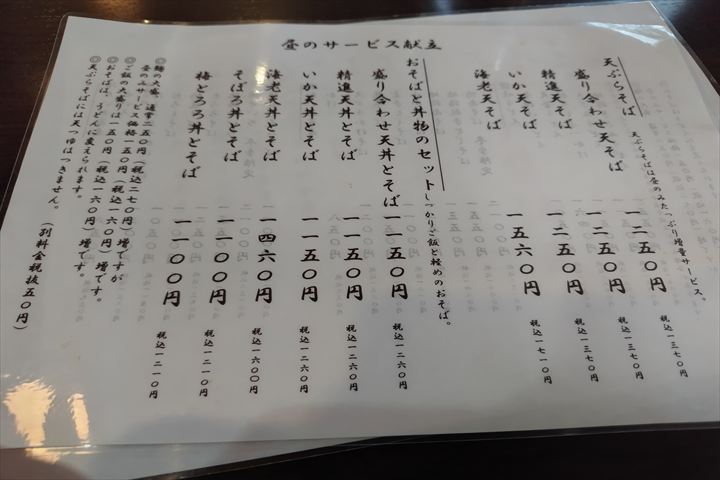 昼のサービス献立
天ぷらそば 天ぷらそばは昼のみたっぷり増量サービス。
盛り合わせ天そば 一二五〇円 税込一三七〇円
精進天そば 一二五〇円 税込一三七〇円
いか天そば 一二五〇円 税込一三七〇円
海老天そば 一五六〇円 税込一七一〇円
おそばと丼物のセット しっかりご飯と軽めのおそば。
盛り合わせ天丼とそば 一一五〇円 税込一二六〇円
精進天丼とそば 一一五〇円 税込一二六〇円
いか天丼とそば 一一五〇円 税込一二六〇円
海老天丼とそば 一四六〇円 税込一六〇〇円
そぼろ丼とそば 一一〇〇円 税込一二一〇円
梅とろろ丼とそば 一一〇〇円 税込一二一〇円
◎麺の大盛、通常二五〇円(税込二七〇円)増ですが
昼のみサービス価格一五〇円(税込一六〇円)増です。
◎ご飯の大盛りは一五〇円(税込一六〇円)増です。
◎おそばは、うどんに変えられます。
◎天ぷらそばには天つゆはつきません。
(別料金税抜五〇円)